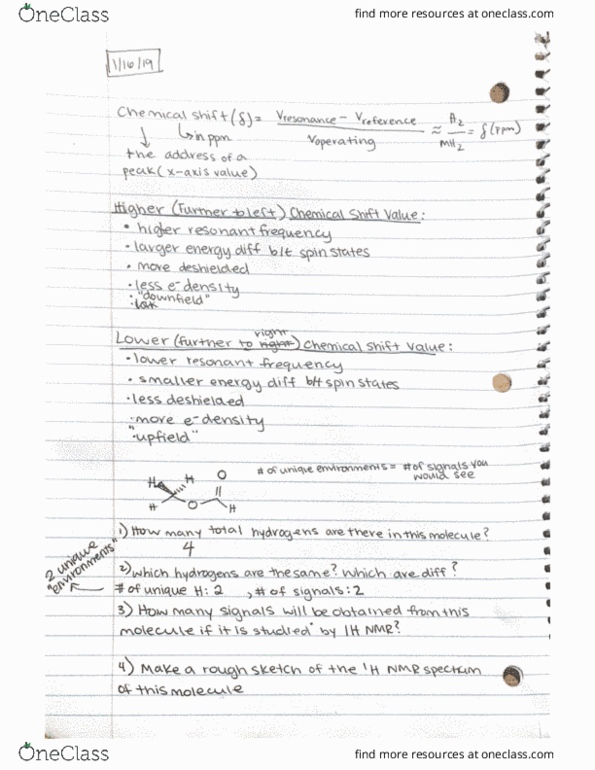 OneClass
find more resources at oneclass.com
1/16/19
Chemical shift (δ) = Vresonance - Vreference / Voperating ≈ Hz / MHz = δ (ppm)
↳ in ppm
the address of a
peak (x-axis value)
Higher (further to left) Chemical Shift Value:
• higher resonant frequency
• larger energy diff b/t spin states
• more deshielded
• less e- density
• "downfield"
Lower (further to right) Chemical Shift Value:
• lower resonant frequency
• smaller energy diff b/t spin states
• less deshielded
• more e- density
"upfield"
# of unique environments = # of signals you
would see
H H O
H O H
1) How many total hydrogens are there in this molecule?
4
2 unique
"environments"
2) Which hydrogens are the same? Which are diff?
# of unique H: 2 , # of signals: 2
3) How many signals will be obtained from this
molecule if it is studied by 1H NMR?
4) Make a rough sketch of the 1H NMR spectrum
of this molecule
OneClass
find more resources at oneclass.com